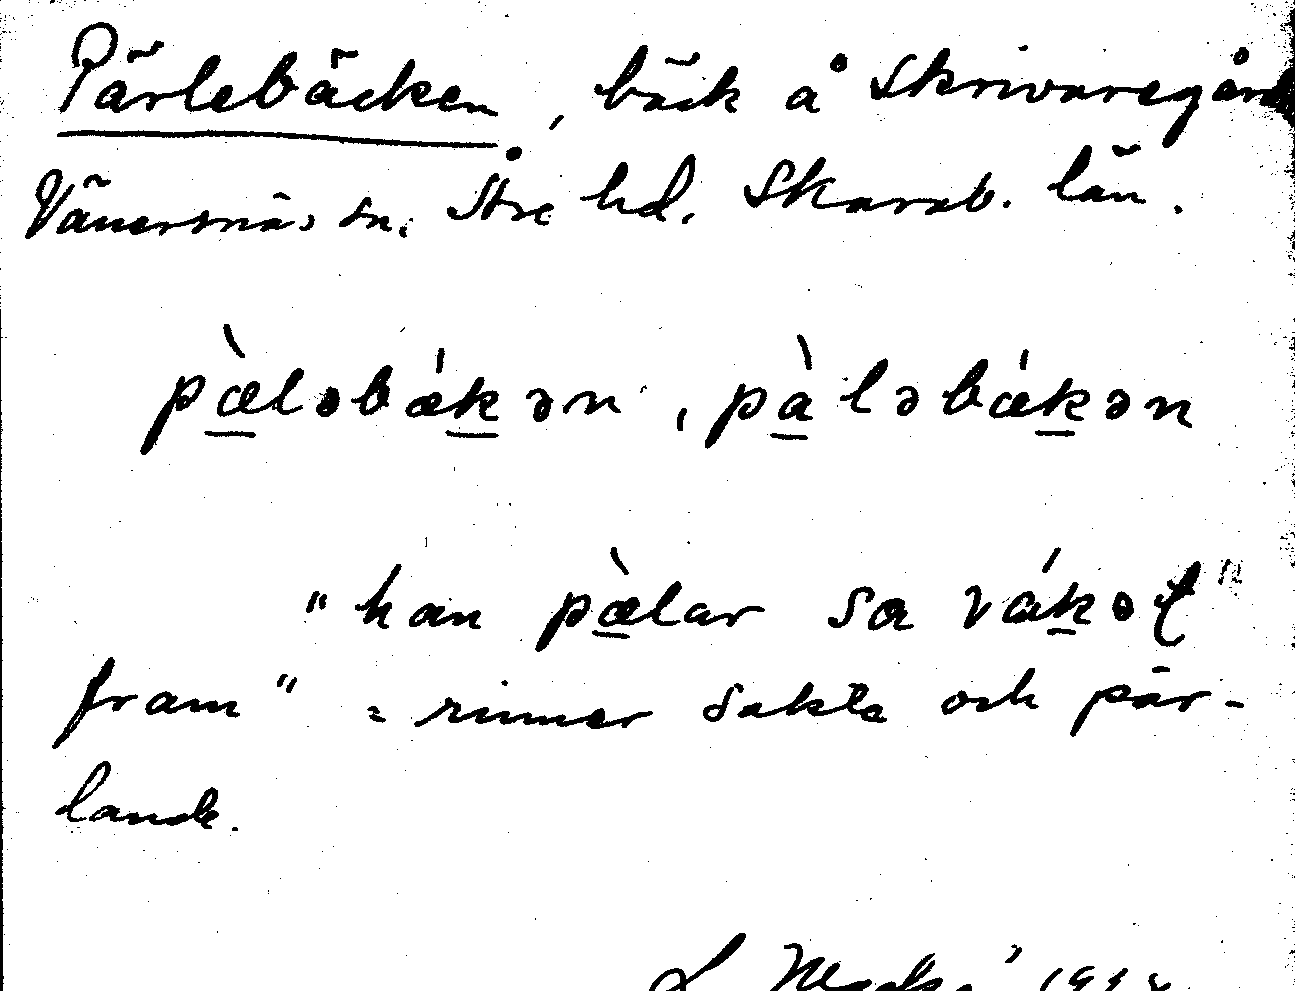 Pärlebäcken, bäck å Skrivaregård
Vänersnäs sn. Åse hd. Skarab. län.
pæ̀ləbǽkən, pàləbǽkən
"han pæ̀lar sa vákət
fram" = rinner sakta och pär-
lande.